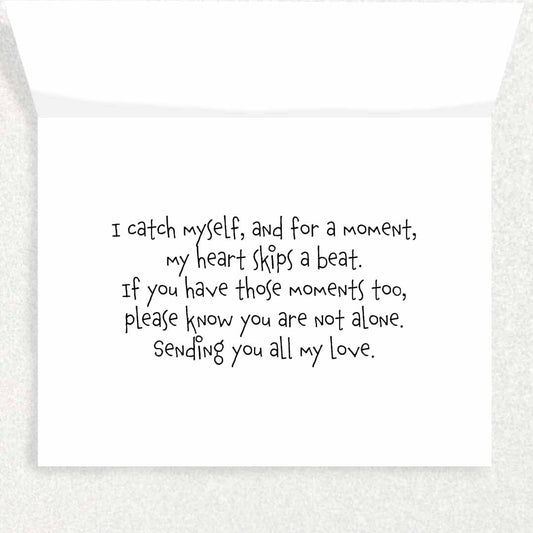 I catch myself, and for a moment,
my heart skips a beat.
If you have those moments too,
please know you are not alone.
Sending you all my love.